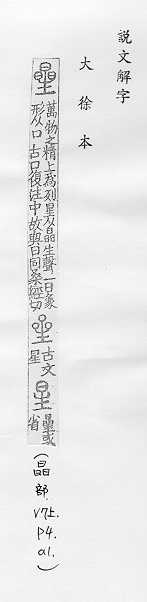 説文解字
大徐本
曐 萬物之精上爲列星从晶生聲一曰象
形从口古口復注中故與日同桑經切
古文
星
曐或
省
(晶部.
V7上.
P4.
a1.)